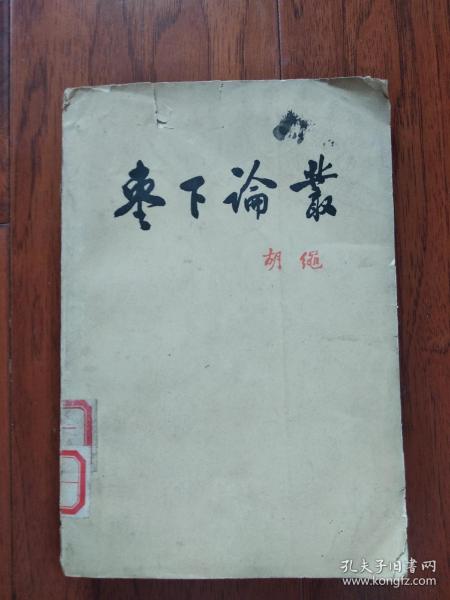 枣下論叢
胡繩
孔夫子旧书网
www.kongfz.com